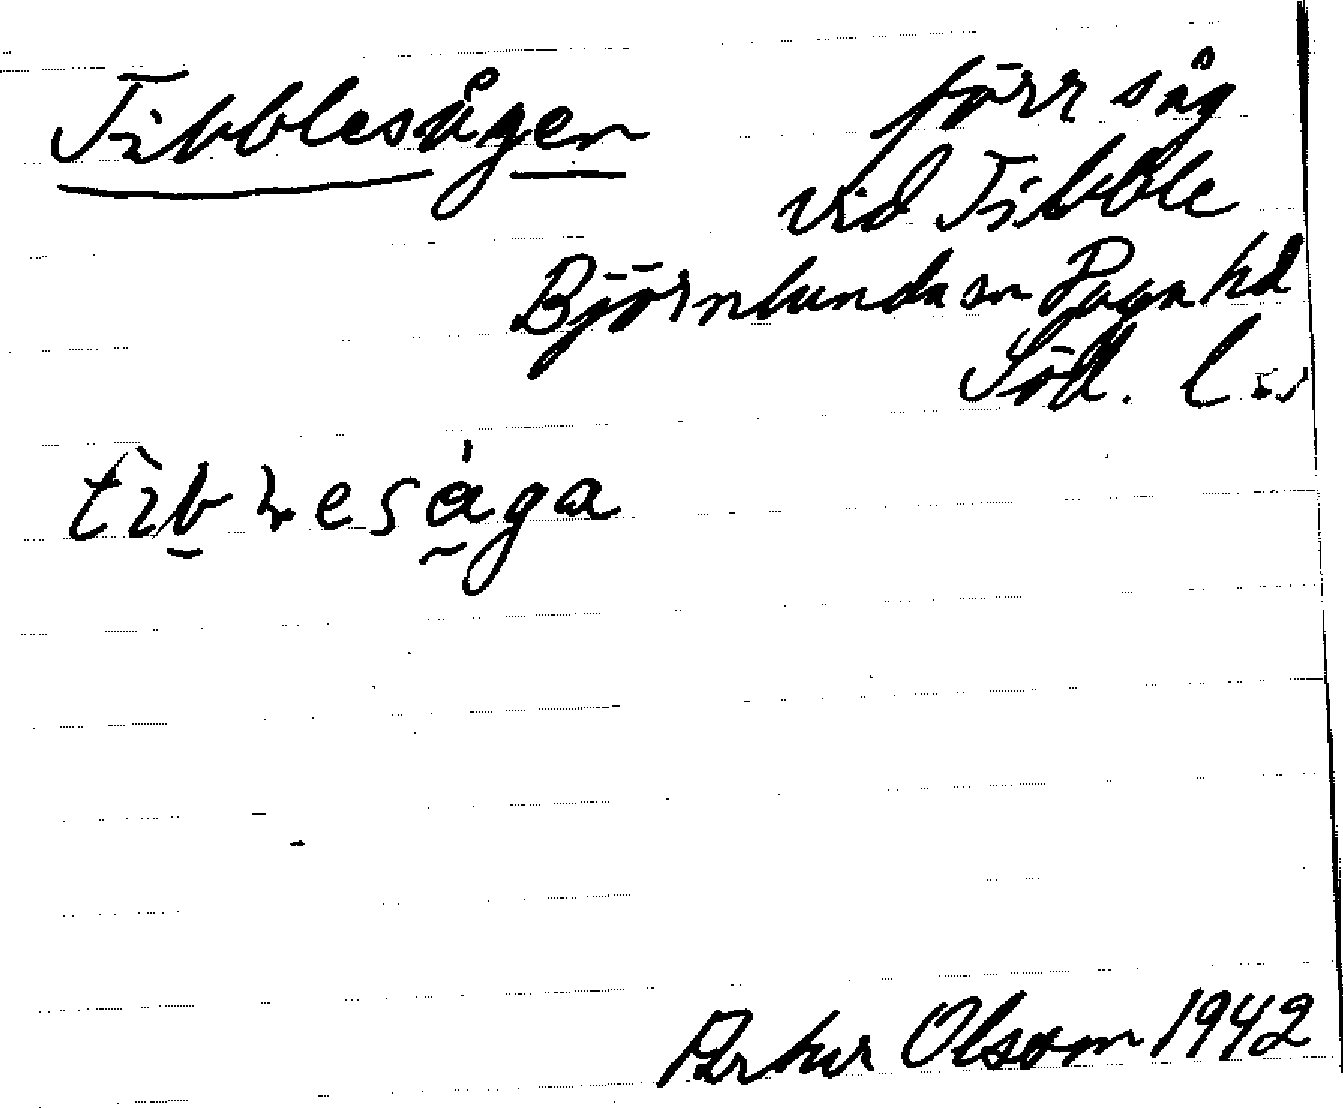 Tibblesågen
förr såg
vid Tibble
Björnlunda sn Daga hd
Söd. l.
Olsson 1942